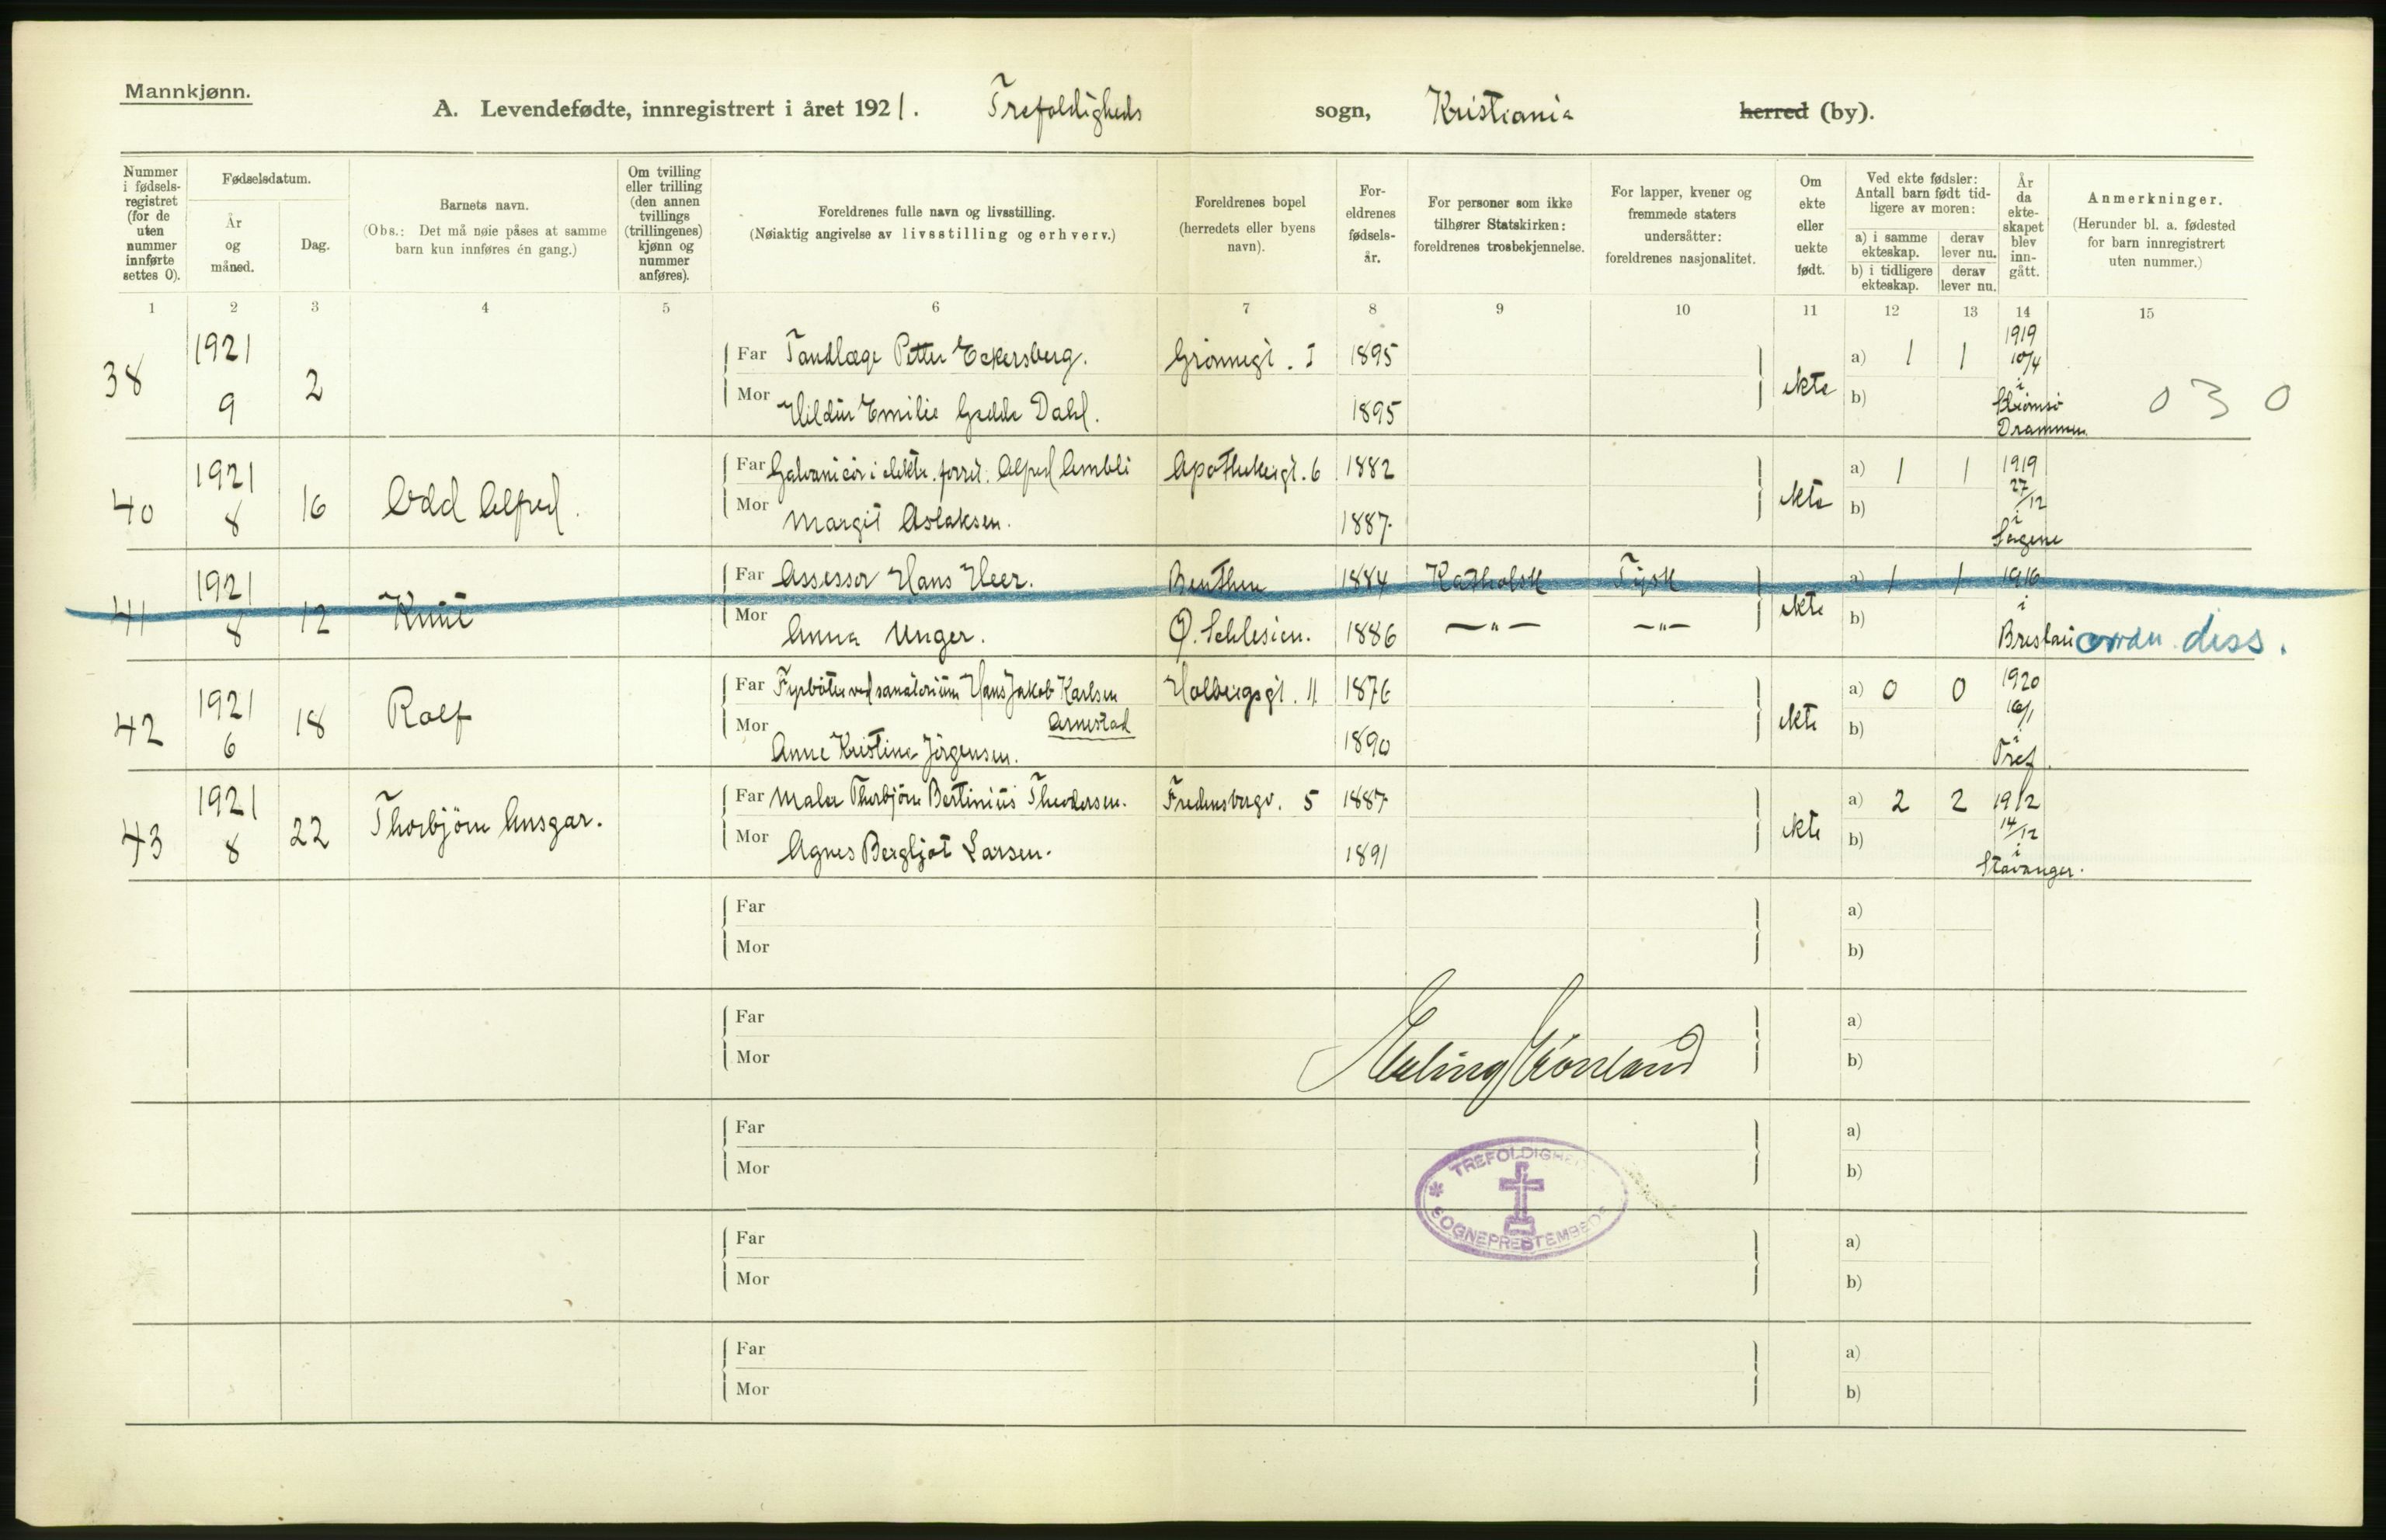 Mannkjønn.
A. Levendefødte, innregistrert i året 1921. Trefoldigheds sogn, Kristiania herred (by).
Nummer i fødsels-registret (for de uten nummer innførte settes 0).
Fødselsdatum.
År og måned.
Dag.
Barnets navn.
(Obs.: Det må nøie påses at samme barn kun innføres én gang.)
Om tvilling eller trilling (den annen tvillings (trillingenes) kjønn og nummer anføres).
Foreldrenes fulle navn og livsstilling.
(Nøiaktig angivelse av livsstilling og erhverv.)
Foreldrenes bopel
(herredets eller byens navn).
For-eldrenes fødsels-år.
For personer som ikke tilhører Statskirken: foreldrenes trosbekjennelse.
For lapper, kvener og fremmede staters undersåtter: foreldrenes nasjonalitet.
Om ekte eller uekte født.
Ved ekte fødsler:
Antall barn født tid-ligere av moren:
a) i samme ekteskap. derav lever nu.
b) i tidligere ekteskap. derav lever nu.
År da ekte-skapet blev inn-gått.
Anmerkninger.
(Herunder bl. a. fødested for barn innregistrert uten nummer.)
1 2 3 4 5 6 7 8 9 10 11 12 13 14 15
38 1921 9 2
Far Tandlæge Petter Eckersberg. Grønnegt. I 1895
Mor Hildur Emilie Gedde Dahl. 1895
ekte a) 1 1 b) 1919 10/4 i Strømsø Drammen 0 3 0
40 1921 8 16 Odd Alfred.
Far Galvanisør i elektr. forret. Alfred Ambli Apothekergt. 6 1882
Mor Margit Aslaksen. 1887.
ekte a) 1 1 b) 1919 27/12 i Sagene
41 1921 8 12 Knut
Far Assessor Hans Heer. Beuthen 1884 Katholsk Tysk
Mor Anna Unger. O. Schlesien. 1886 — " — — " —
ekte a) 1 1 b) 1916 i Breslau diss.
42 1921 6 18 Rolf
Far Fyrbøter ved sanatorium Hans Jakob Karlsen Holbergsgt. 11 1876
Arnestad
Mor Anne Kristine Jørgensen. 1890
ekte a) 0 0 b) 1920 16/1 i Tref.
43 1921 8 22 Thorbjørn Ansgar.
Far Maler Thorbjørn Bertinius Theodorsen. Fredensborgv. 5 1887
Mor Agnes Bergljot Larsen. 1891
ekte a) 2 2 b) 1912 14/12 i Stavanger.
Far a)
Mor b)
Far a)
Mor b)
Erling
Far a)
Mor b)
TREFOLDIGHE
SOGNEPRESTEMBEDE
Far a)
Mor b)
Far a)
Mor b)